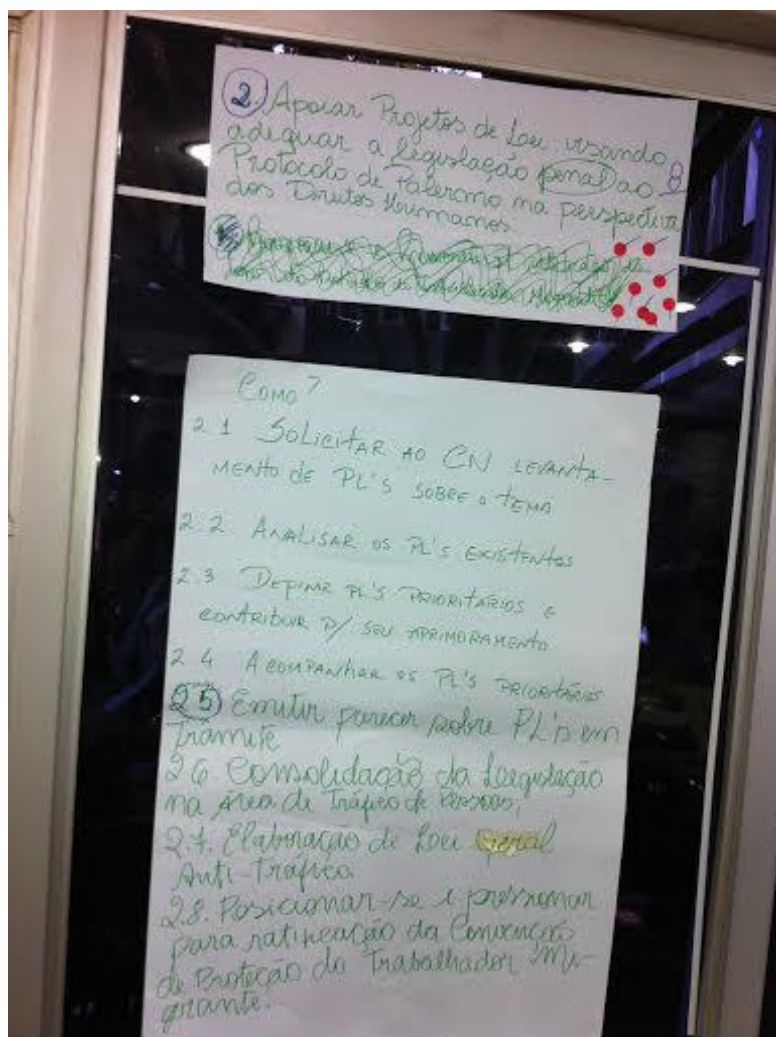 2. Apoiar Projetos de Lei, visando
adequar a legislação penal ao 8
Protocolo de Palermo na perspectiva
dos Direitos Humanos.
COMO?
2.1 SOLICITAR AO CN LEVANTA-
MENTO de PL'S SOBRE o TEMA
2.2 ANALISAR os PL'S EXISTENTES
2.3 DEFINIR PL'S PRIORITÁRIOS e
CONTRIBUIR P/ SEU APRIMORAMENTO
2.4 ACOMPANHAR os PL'S PRIORITÁRIOS
2.5) Emitir parecer sobre PL's em
Tramite
2.6. Consolidação da Legislação
na Área de Tráfico de Pessoas;
2.7. Elaboração de Lei Geral
Anti-Tráfico.
2.8. Posicionar-se e pressionar
para ratificação da Convenção
de Proteção do Trabalhador Mi-
grante.